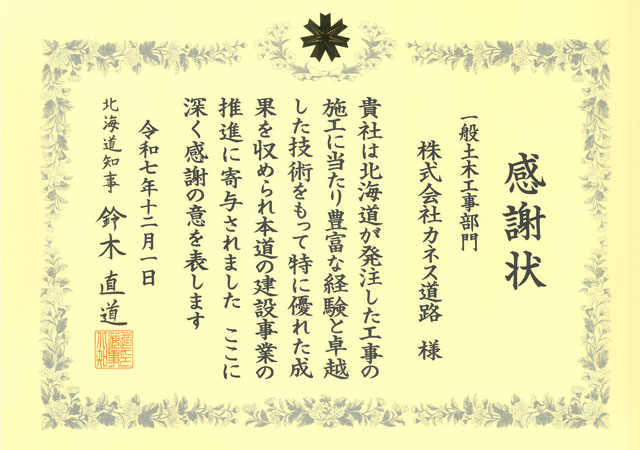 感謝状
一般土木工事部門
株式会社カネス道路 様
貴社は北海道が発注した工事の
施工に当たり豊富な経験と卓越
した技術をもって特に優れた成
果を収められ本道の建設事業の
推進に寄与されました ここに
深く感謝の意を表します
令和七年十二月一日
北海道知事 鈴木直道